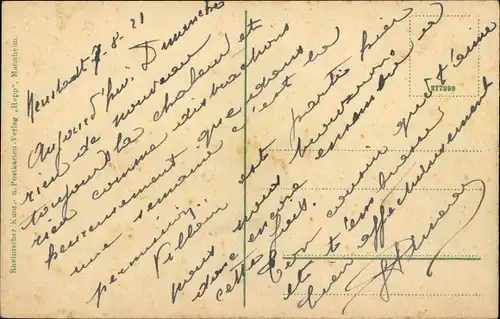 Neustadt 7-8-21
Aujourd'hui Dimanche
rien de nouveau
toujours la chaleur et
rien comme distractions
heureusement que dans
une semaine c'est la
permission..
Villain est parti hier
nous nous trouvons
donc encore ensemble
cette fois.
Ton cousin qui t'aime
et t'embrasse
bien affectueusement
Rheinischer Kunst- u. Postkarten-Verlag „Hepp", Mannheim.
377999